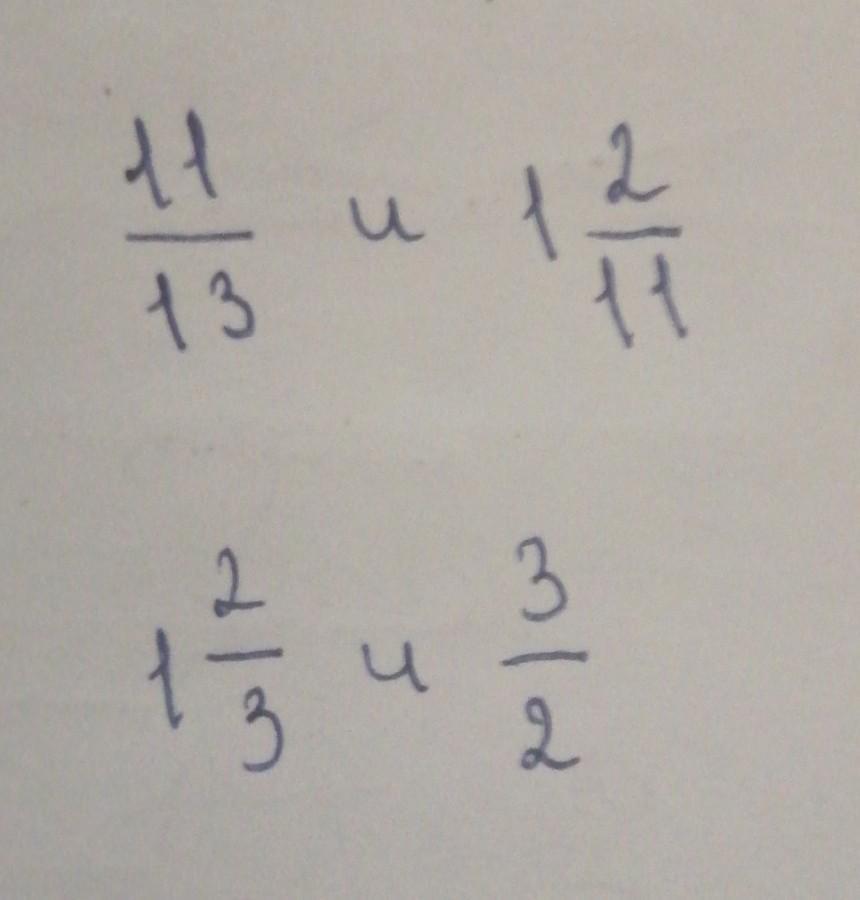 11/13 и 1 2/11
1 2/3 и 3/2